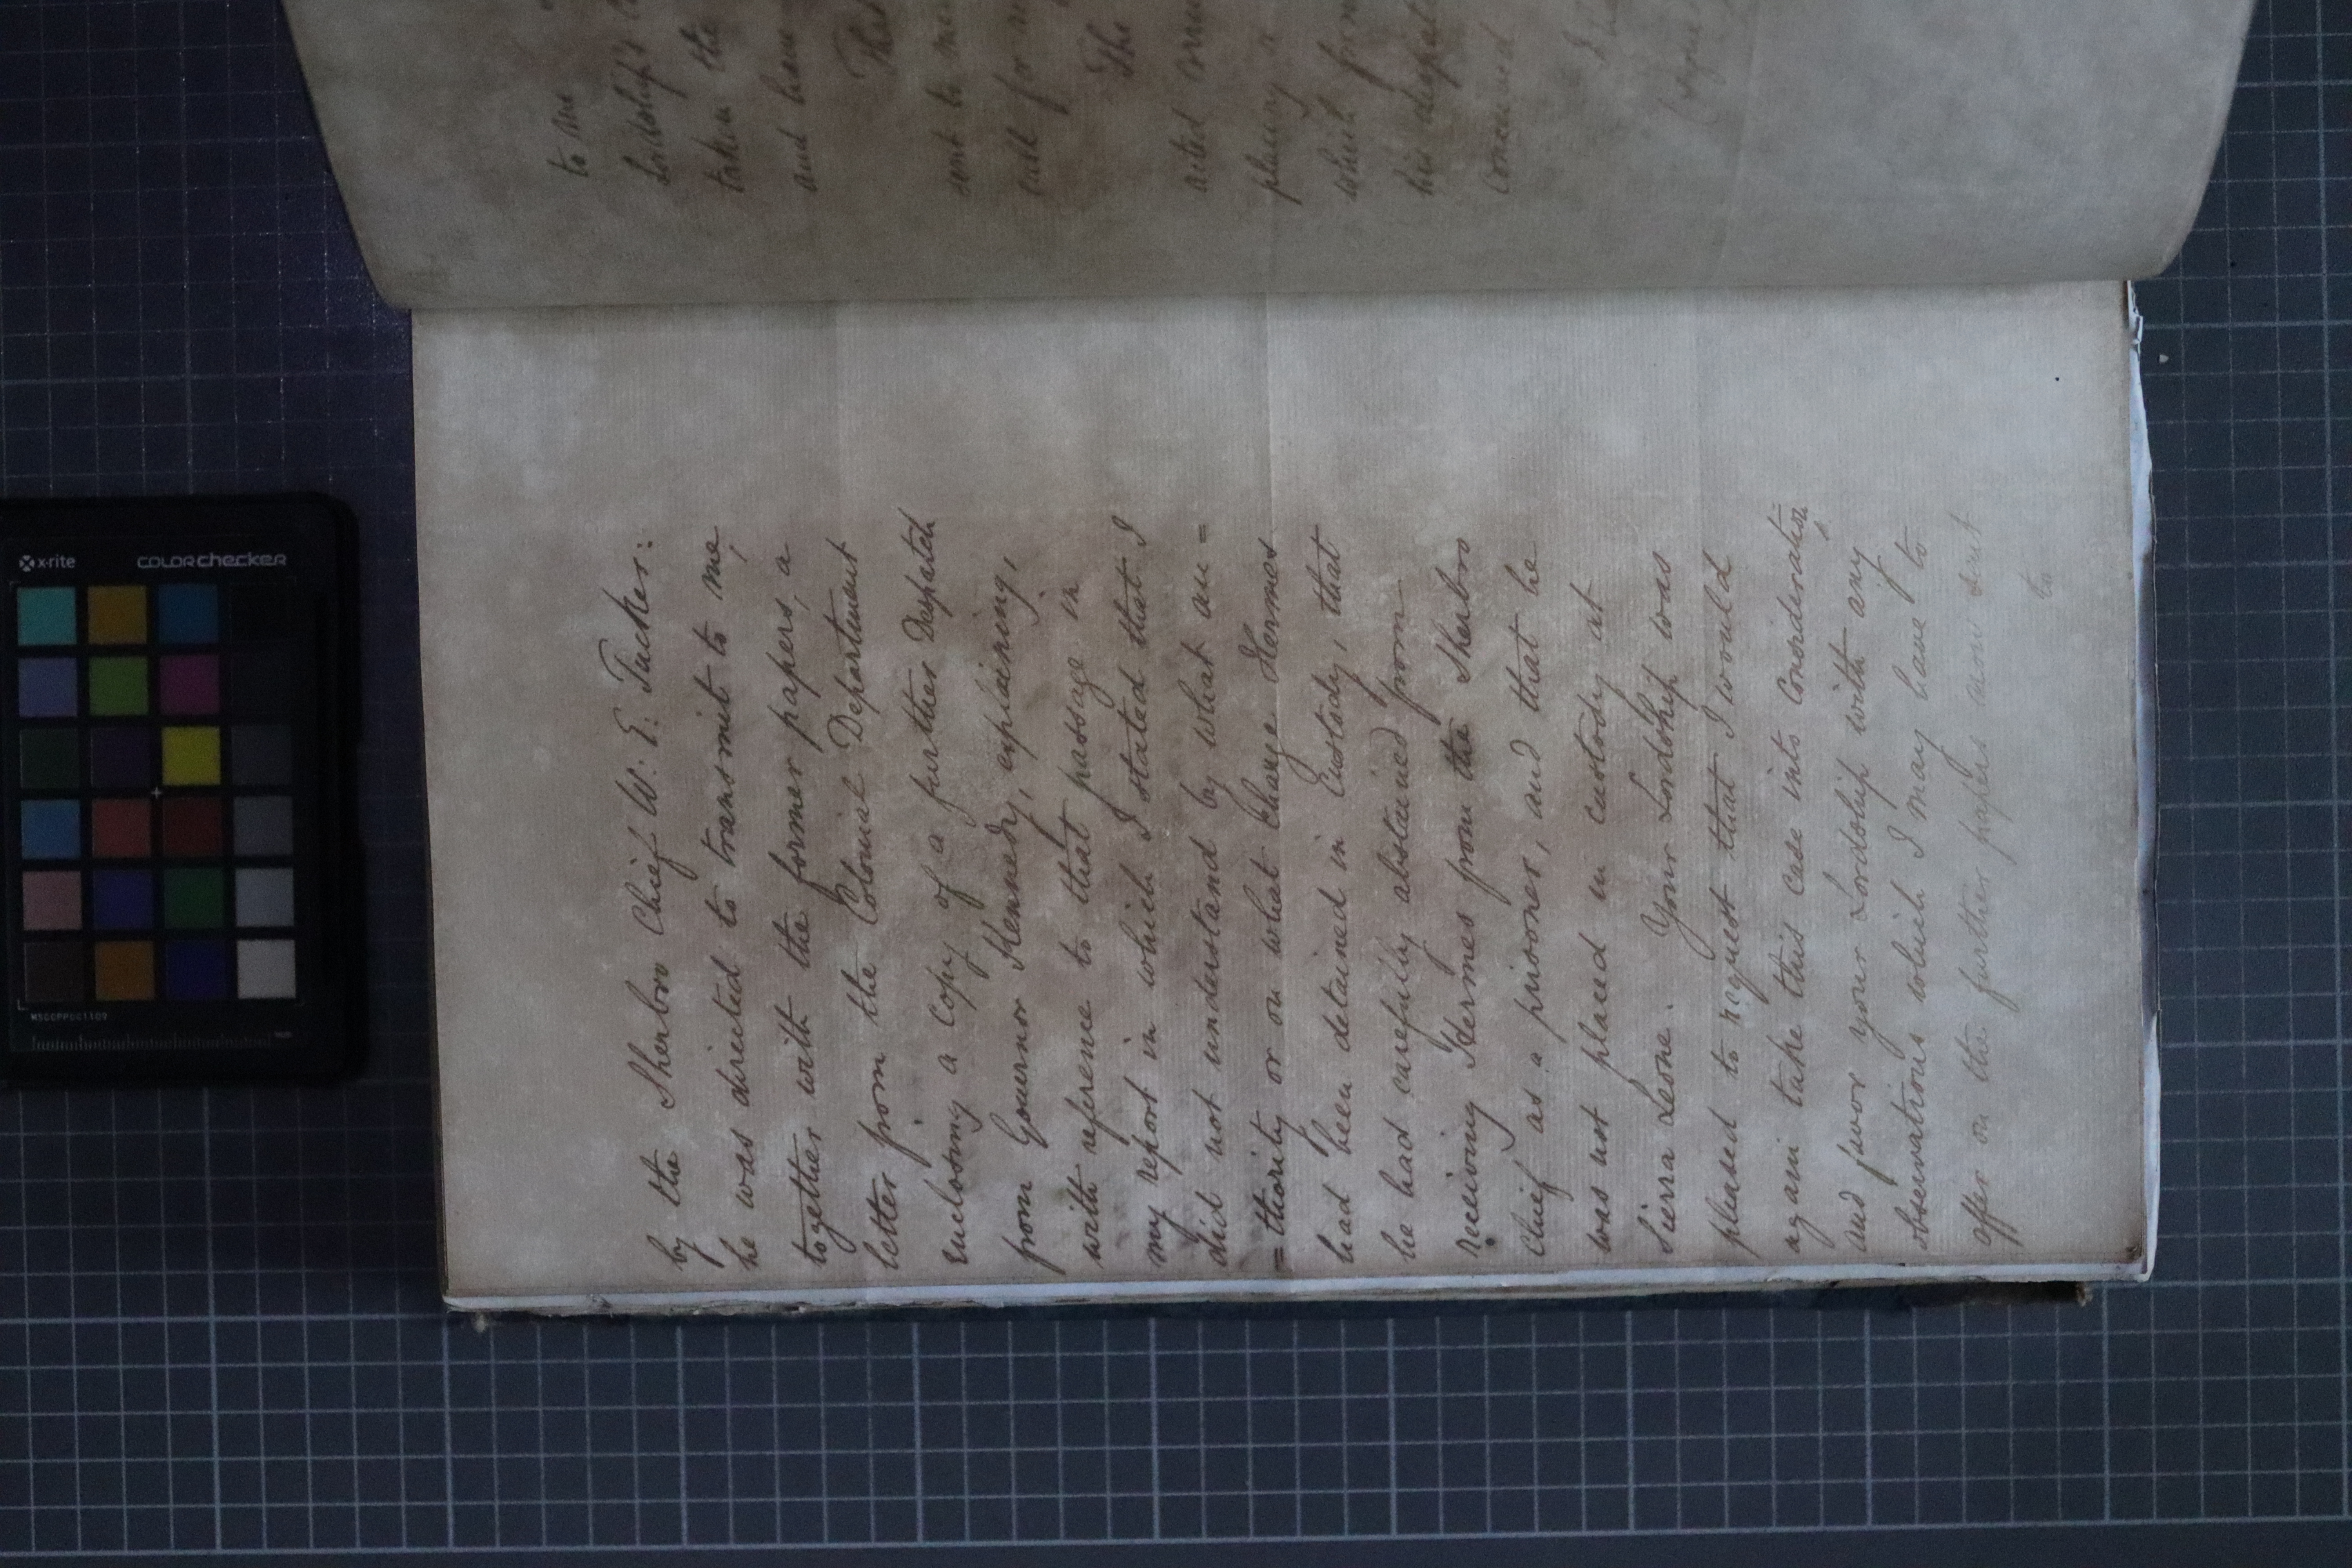 by the Sherbro Chief W. E. Tucker:
he was directed to transmit to me,
together with the former papers, a
letter from the Colonial Department
enclosing a copy of a further Despatch
from Governor Kennedy, explaining,
with reference to that passage in
my report in which I stated that I
did not understand by what au =
= thority or on what charge Hermes
had been detained in Custody, that
he had carefully abstained from
receiving Hermes from the Sherbro
Chief as a prisoner, and that he
was not placed in custody at
Sierra Leone. Your Lordship was
pleased to request that I would
again take this case into Consideration,
and favor your Lordship with any
observations which I may have to
offer on the further papers now sent
to
to me
Lordship's
taken the
and have
That
sent to me
call for
The
acted
placing a
which
his
concerned
x-rite
colorchecker
MSCCPPCC1109